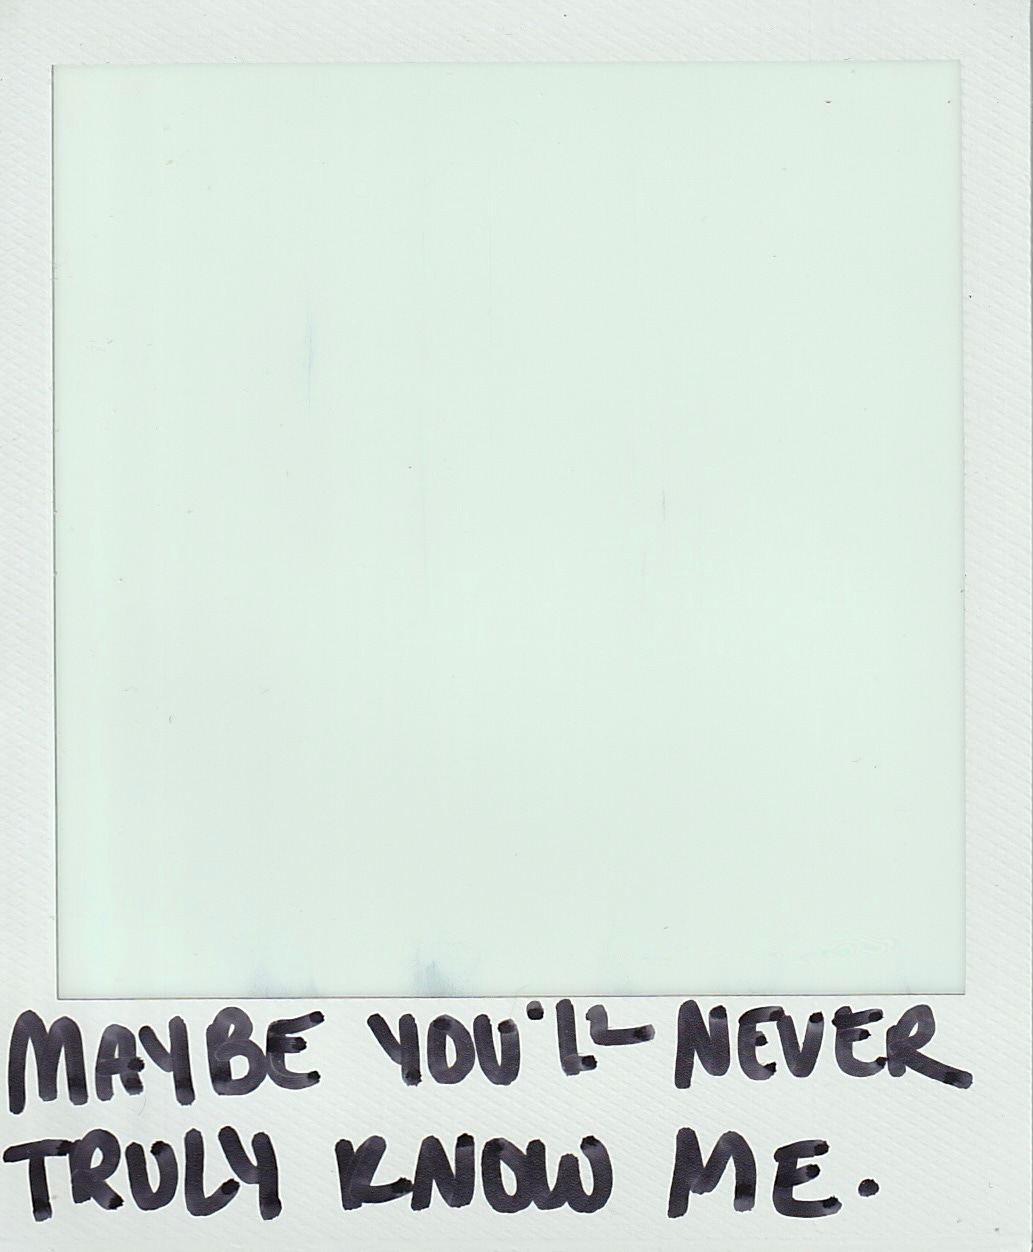 MAYBE YOU'LL NEVER
TRULY KNOW ME.